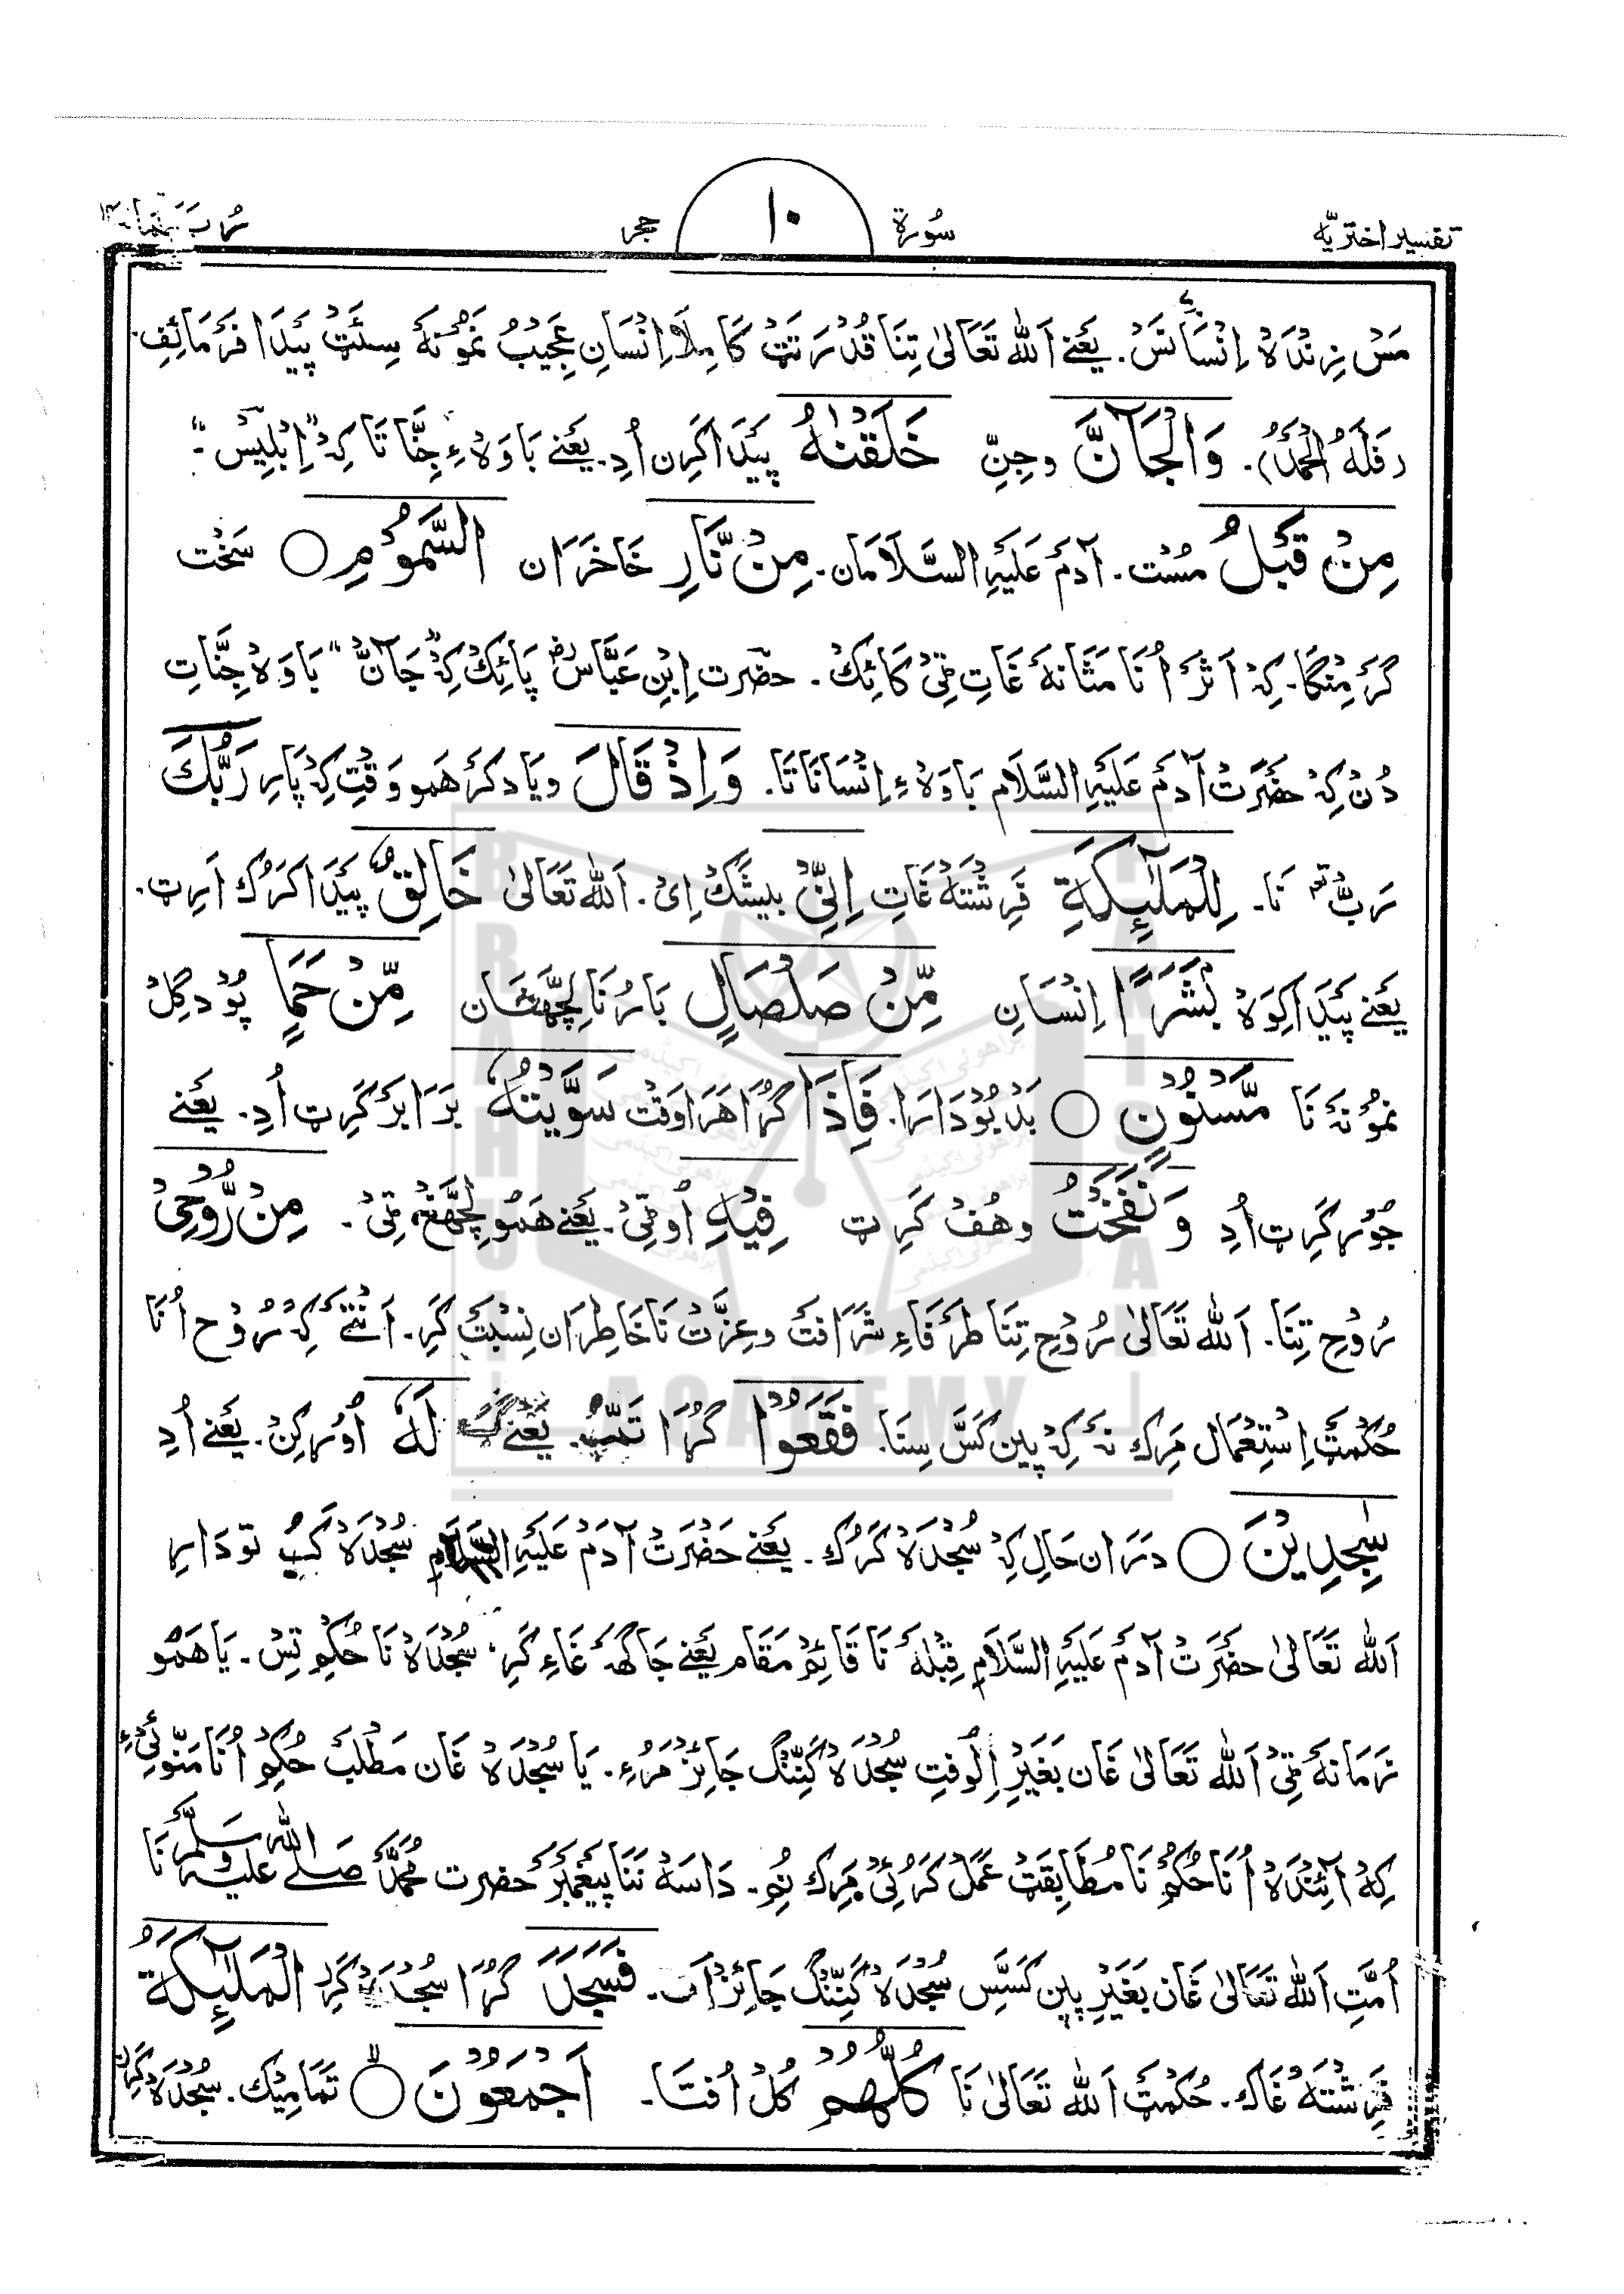 تفسیر اختریّه
سُورة
۱۰
حجر
رُبَمَا ۱۴
مَسْ زِنْدَہْ اِنْسَانَسْ. یَعْنِے اَللّٰہ تَعَالیٰ تِنَا قُدْرَتَتْ کَامِلَا اِنْسَانِ عَجِیْبُ نَمُوْنَہٗ سِئَتْ پَیْدَا فَرْمَائِفِ.
(فَلَہُ الْحَمْدُ). وَالْجَآنَّ وجِنِّ خَلَقْنٰہُ پَیْدَا کَرِن اُدِ. یَعْنِے بَاوَہْ ءِ جِنَّاتَا کِہْ "اِبْلِیْسْ"۔
مِنْ قَبْلُ مُسْت. آدَمْ عَلَیْہِ السَّلَامَان. مِنْ نَّارِ خَاخَرَان السَّمُوْمِ ○ سَخْت
گَرَمِنْگَا. کِہْ اَثَرْ اُنَا مَثَانَہ غَاتِ ٹِیْ کَائِکْ. حضرت اِبْنِ عَبَّاسْؓ پَائِکْ کِہْ "جَآنَّ" بَاوَہْ جِنَّاتِ
دُنْ کِہْ حَضْرَتْ آدَمْ عَلَیْہِ السَّلَام بَاوَہْ ءِ اِنْسَانَاتَا. وَاِذْ قَالَ ویَاد کَرْ ھَمو وَقْتِ کِہْ پَارِ رَبُّكَ
رَبّ نَا۔ لِلْمَلٰٓئِكَةِ فَرِشْتَہ غَاتِ اِنِّیْ بیشَکْ اِیْ. اَللّٰہ تَعَالیٰ خَالِقٌ پَیْدَا کَرُك اَرِٹ.
یَعْنِے پَیْدَا کِوَہْ بَشَرًا اِنْسَانِ مِّنْ صَلْصَالٍ بَارُنَا لِچَّھْڑَان مِّنْ حَمَاٍ پُوْد گِلْ
نَمُوْنَہ نَا مَّسْنُوْنٍ ○ بَدْبُوْدَارَا. فَاِذَا گُڑَا ھَرَا وَقْت سَوَّیْتُہٗ بَرَابَرْ کَرِٹ اُدِ. یَعْنِے
جُوْڑ کَرِٹ اُدِ وَنَفَخْتُ وھُفْ کَرِٹ فِیْہِ اُوٹِیْ. یَعْنِے ھَمو لِچَّھْڑ ٹِیْ۔ مِنْ رُّوْحِیْ
رُوْحِ تِنَا. اَللّٰہ تَعَالیٰ رُوْحِ تِنَا طَرَفَاءِ شَرَافَتْ وعِزَّتْ نَا خَاطِرَان نِسْبَتْ کَرِ. اَنْتَے کِہْ رُوْح اُنَا
حُکْمَتْ اِسْتِعْمَال مَرِك نَہ کِہْ پِین کَسْ سِنَا. فَقَعُوْا گُڑَا تَمّبُ. یَعْنِے لَہٗ اُوْڑکِنْ. یَعْنِے اُدِ
سٰجِدِیْنَ ○ دَرَان حَال کِہْ سُجْدَہْ کَرُك. یَعْنِے حَضْرَتْ آدَمْ عَلَیْہِ السَّلَام سُجْدَہْ کَبْ تو دَارِ
اَللّٰہ تَعَالیٰ حَضْرَتْ آدَمْ عَلَیْہِ السَّلَامِ قِبْلَہ نَا قَائِمْ مَقَام یَعْنِے جَاگَھَہ غَاءِ کَرِ، سُجْدَہْ نَا حُکم تِسْ۔ یَا ھَمو
زَمَانَہ ٹِیْ اَللّٰہ تَعَالیٰ غَان بَغَیْرِ اِلُوفتِ سُجْدَہْ کَنِّنْگ جَائِزْ مَرُءِ. یَا سُجْدَہْ غَان مَطْلَبْ حُکِمْ اُنَا مَنّوئِیْ ءِ
کِہْ آئِنْدَہْ اُنَا حُکمْ نَا مُطَابِقَتْ عَمَلْ کَرُئِیْ مَرِك نُم۔ دَاسَہ نَنَا پَیْغَمْبَرْ حضرت مُحَمَّدْ صَلَّے اللّٰہ عَلَیْہِ وَسَلَّمَ نَا
اُمَّتِ اَللّٰہ تَعَالیٰ غَان بَغَیْرِ پِین کَسِّس سُجْدَہْ کَنِّنْگ جَائِزْ اَف۔ فَسَجَدَ گُڑَا سُجْدَہْ کَرِ الْمَلٰٓئِكَةُ
فَرِشْتَہ غَاك. حُکْمَتْ اَللّٰہ تَعَالیٰ نَا كُلُّهُمْ کُلْ اُفتَا۔ اَجْمَعُوْنَ ○ تَمَامِیْك. سُجْدَہْ کَرِ
BRAHUI
ACADEMY